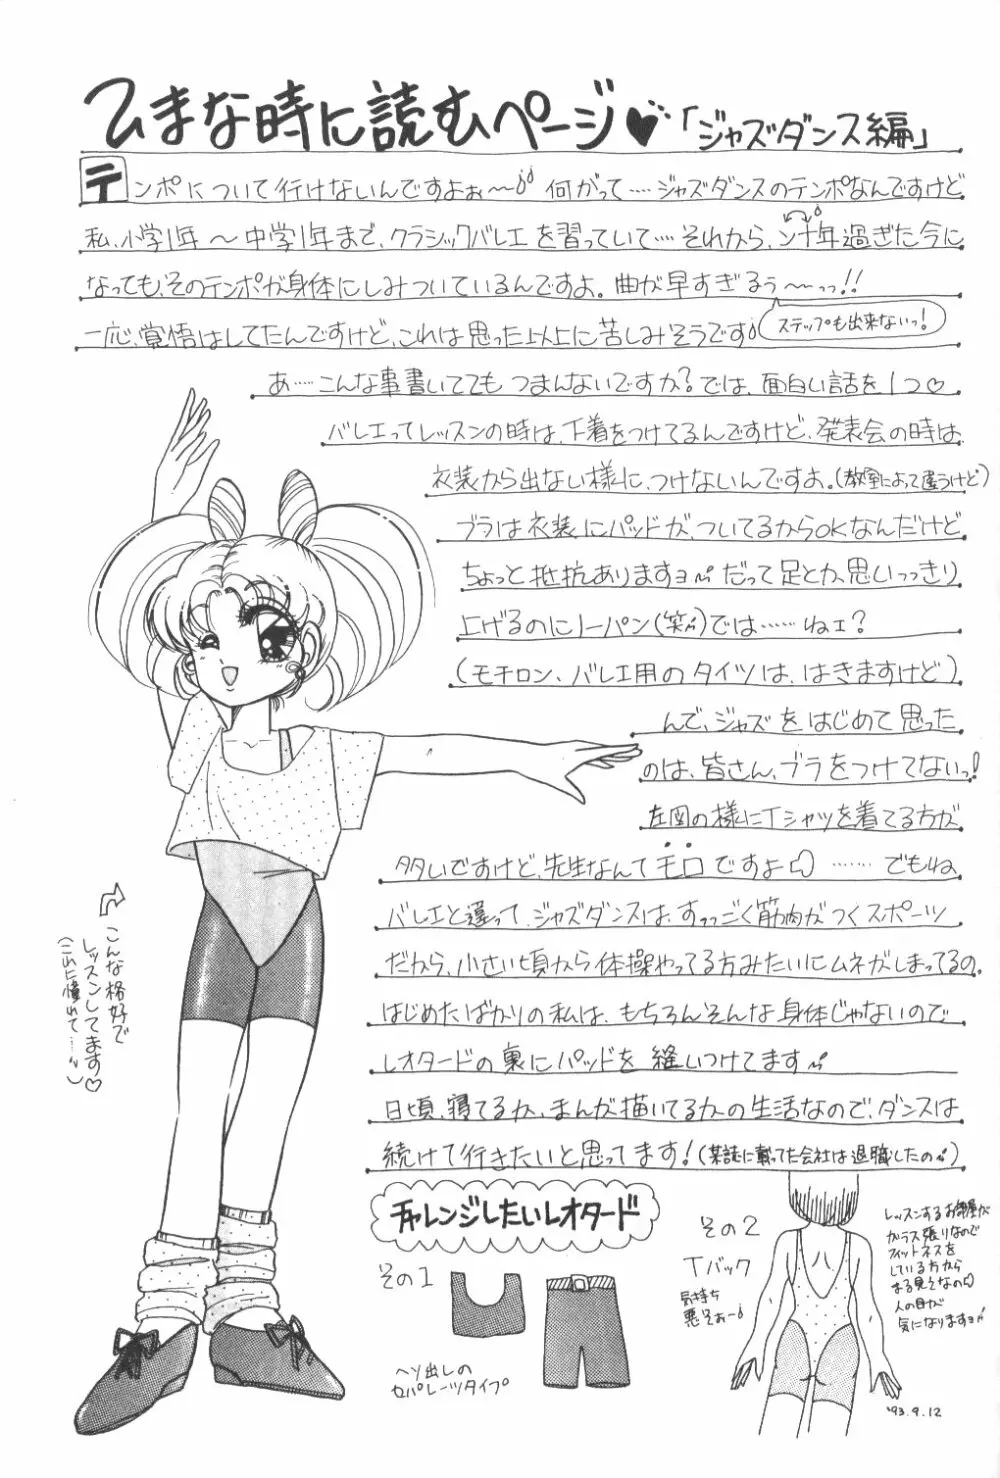 ひまな時に読むページ♥「ジャズダンス編」
テンポについて行けないんですよぉ〜 何がって……ジャズダンスのテンポなんですけど
私、小学1年〜中学1年まで、クラシックバレエを習っていて……それから、ン十年過ぎた今に
なっても、そのテンポが身体にしみついているんですよ。曲が早すぎるぅ〜っっ!!
一応、覚悟はしてたんですけど、これは思った以上に苦しみそうです
ステップも出来ないっ!
あ……こんな事書いててもつまんないですか?では、面白い話を1つ♡
バレエってレッスンの時は、下着をつけてるんですけど、発表会の時は、
衣装から出ない様に、つけないんですよ。(教室によって違うけど)
ブラは衣装にパッドが、ついてるからOKなんだけど
ちょっと抵抗ありますョ だって足とか、思いっっきり
上げるのにノーパン(笑)では……ねェ?
(モチロン、バレエ用のタイツは、はきますけど)
んで、ジャズをはじめて思った
のは、皆さん、ブラをつけてないっ!
左図の様にTシャツを着てる方が
多いですけど、先生なんてモロですよ♡ ……でもね
バレエと違って、ジャズダンスは、すっっごく筋肉がつくスポーツ
だから、小さい頃から体操やってる方みたいにムネがしまってるの。
はじめたばかりの私は、もちろんそんな身体じゃないので
レオタードの裏にパッドを縫いつけてます
日頃、寝てるか、まんが描いてるかの生活なので、ダンスは
続けて行きたいと思ってます!(某誌に載ってた会社は退職したの)
こんな格好で
レッスンしてます♡
(これに憧れて…)
チャレンジしたいレオタード
その1
ヘソ出しの
セパレーツタイプ
その2
Tバック
気持ち
悪そぉー
レッスンするお部屋が
ガラス張りなので
フィットネスを
している方から
まる見えなの
人の目が
気になりますョ
'93.9.12